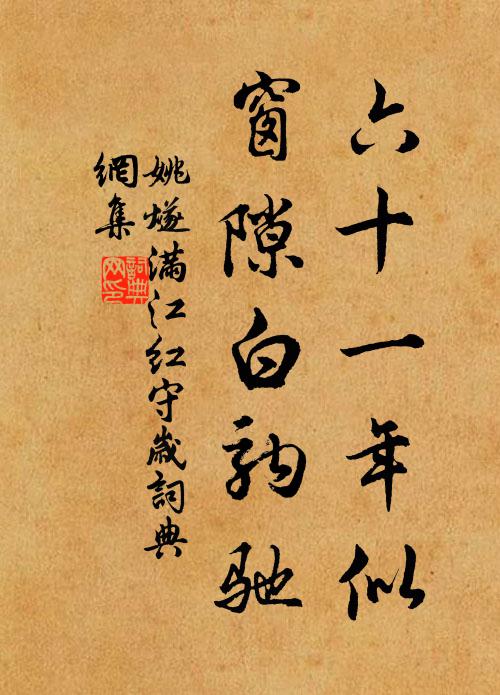 六十一年似
窗隙白駒馳
姚燧滿江紅守歲詞典
網集
詞典
网印